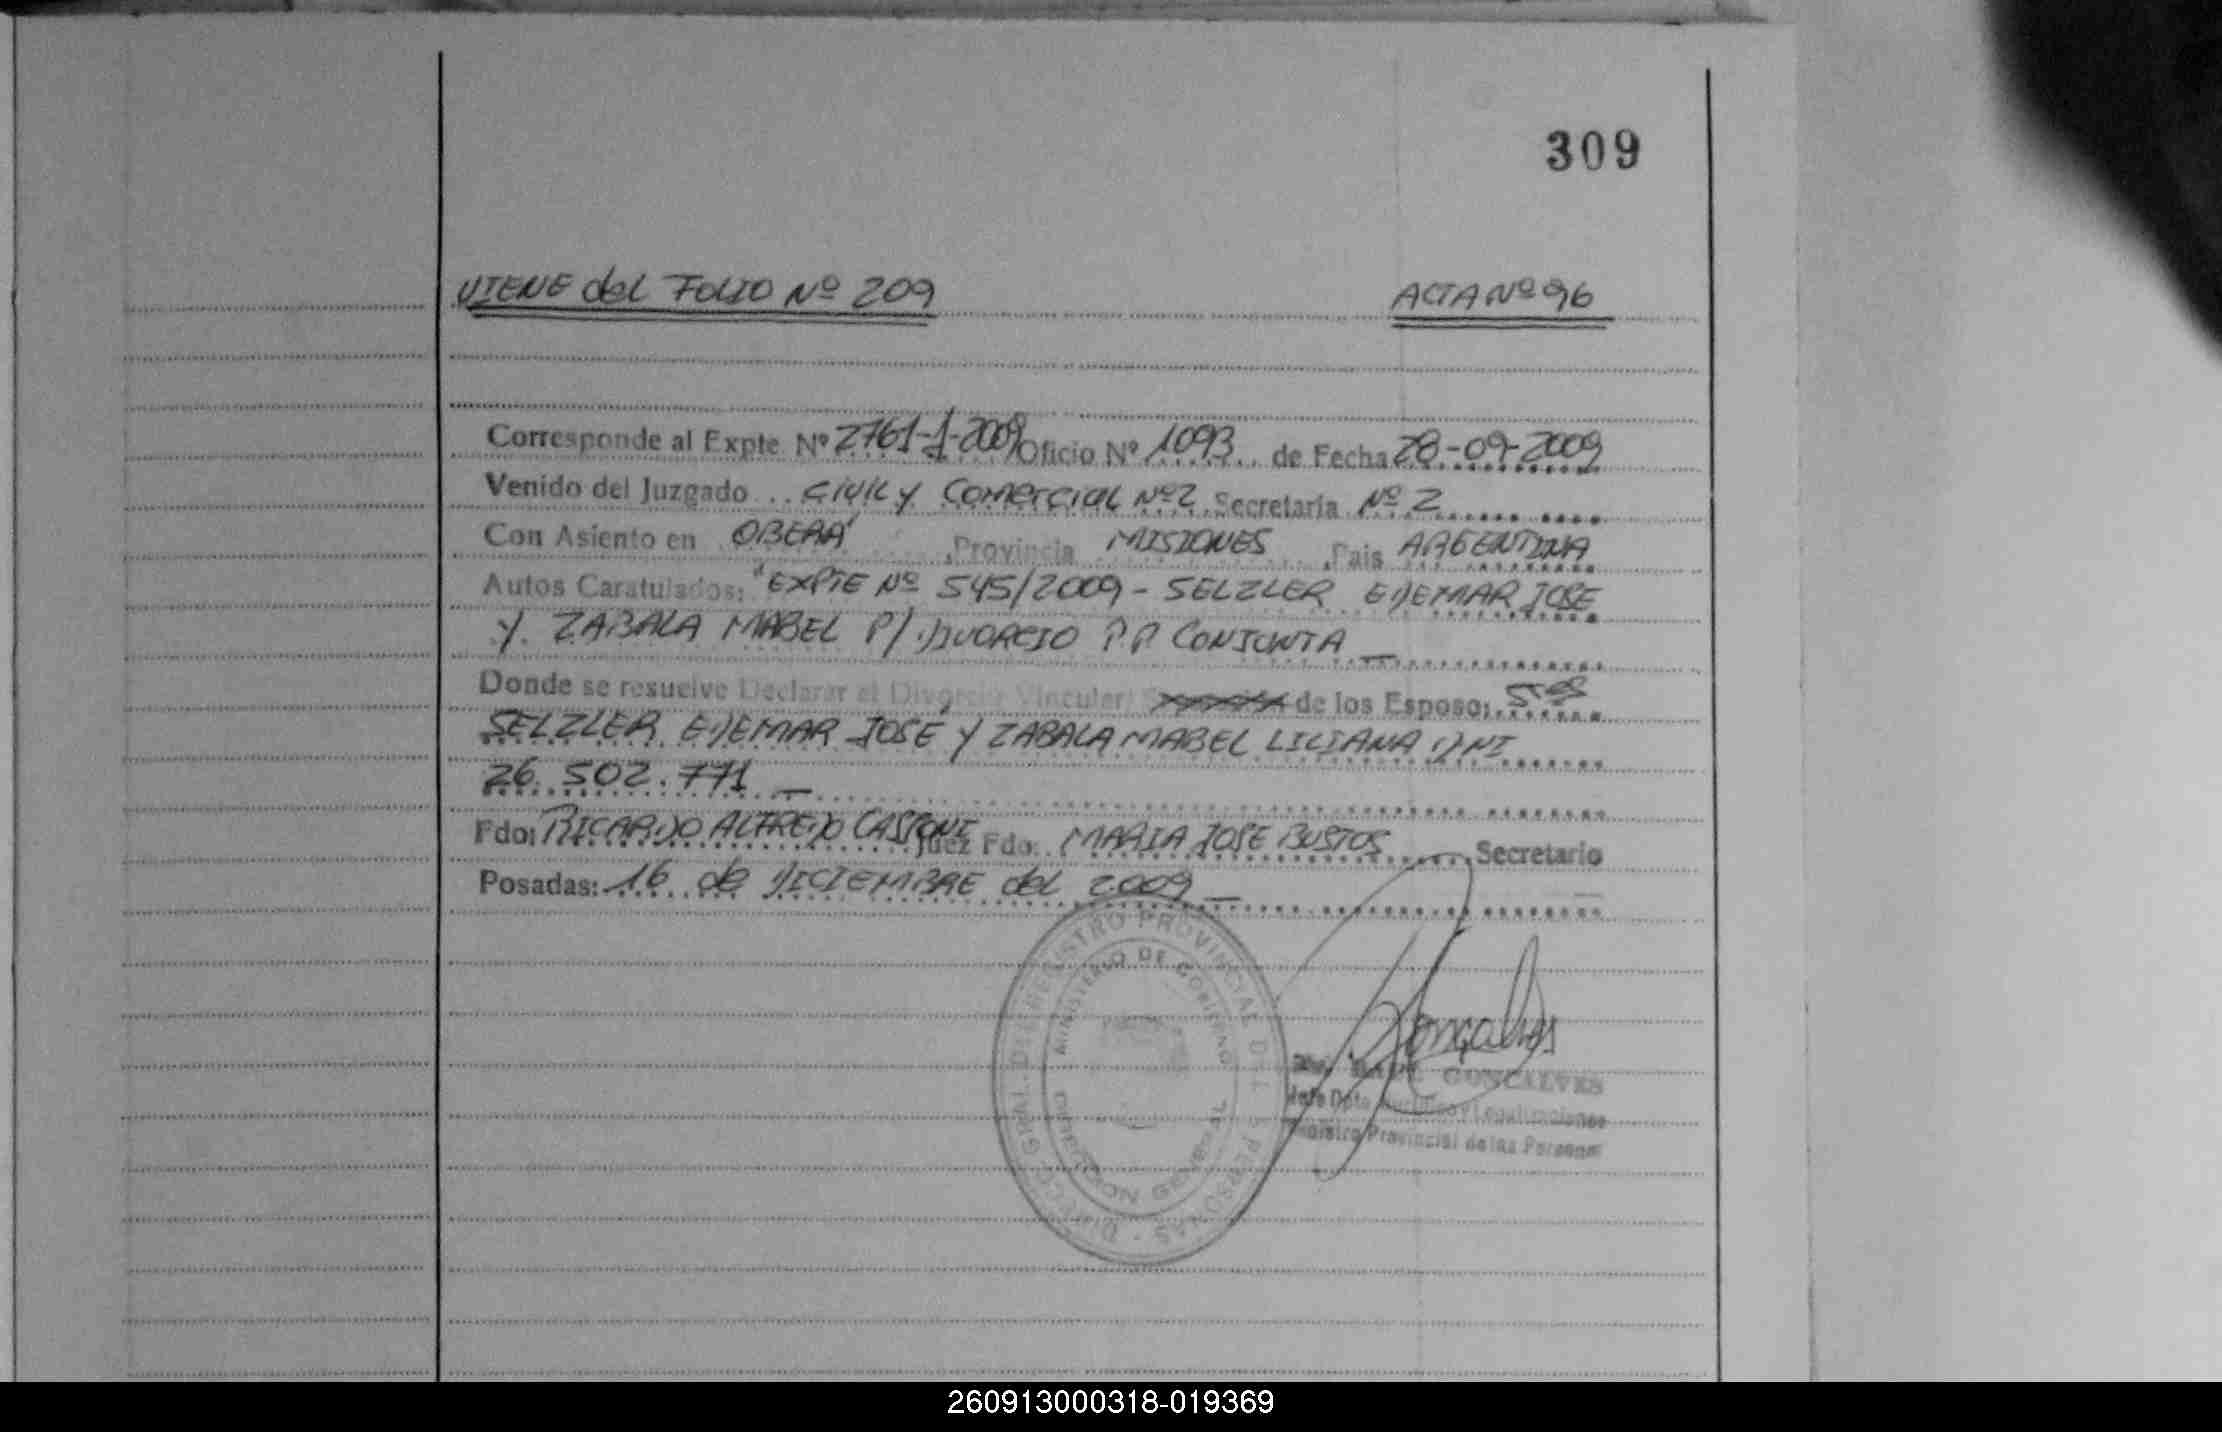 309
VIENE del FOLIO Nº 209 ACTA Nº 96
Corresponde al Expte Nº 2761-1-2009 Oficio Nº 1093 de Fecha 28-09-2009
Venido del Juzgado CIVIL y COMERCIAL Nº2 Secretaria Nº 2
Con Asiento en OBERÁ, Provincia MISIONES, Pais ARGENTINA
Autos Caratulados: "EXPTE Nº 545/2009 - SELZLER EDEMAR JOSE
Y ZABALA MABEL P/ DIVORCIO P.P CONJUNTA —
Donde se resuelve Declarar el Divorcio Vincular de los Esposo: Sres
SELZLER EDEMAR JOSÉ Y ZABALA MABEL LILIANA DNI
26.502.771 —
Fdo: RICARDO ALFREDO CASTONI Juez Fdo: MARIA JOSE BUSTOS Secretario
Posadas: 16 de DICIEMBRE del 2009 —
DIRECC. GRAL. DEL REGISTRO PROVINCIAL DE L S PERSONAS
MINISTERIO DE GOBIERNO
DIRECCION GENERAL
GONCALVES
Jefe Dpto y Legalizaciones
Registro Provincial de las Personas
260913000318-019369